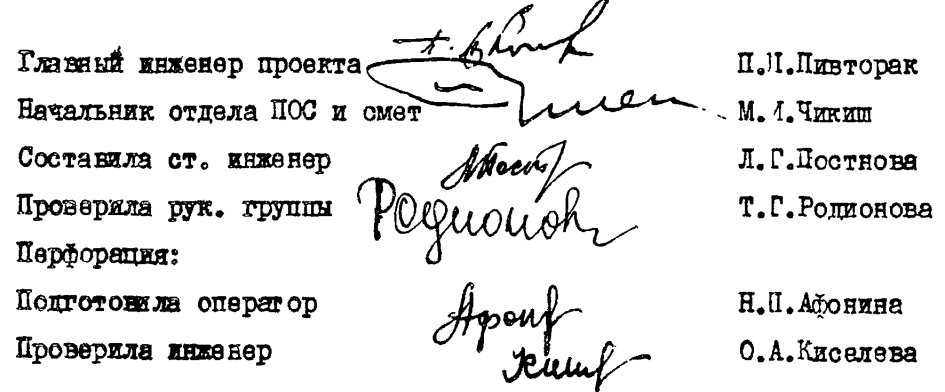 Главный инженер проекта П.П.Пивторак
Начальник отдела ПОС и смет Чикиш
Составила ст. инженер Л.Г.Постнова
Проверила рук. группы Родионов Т.Г.Родионова
Перфорация:
Подготовила оператор Н.П.Афонина
Проверила инженер О.А.Киселева